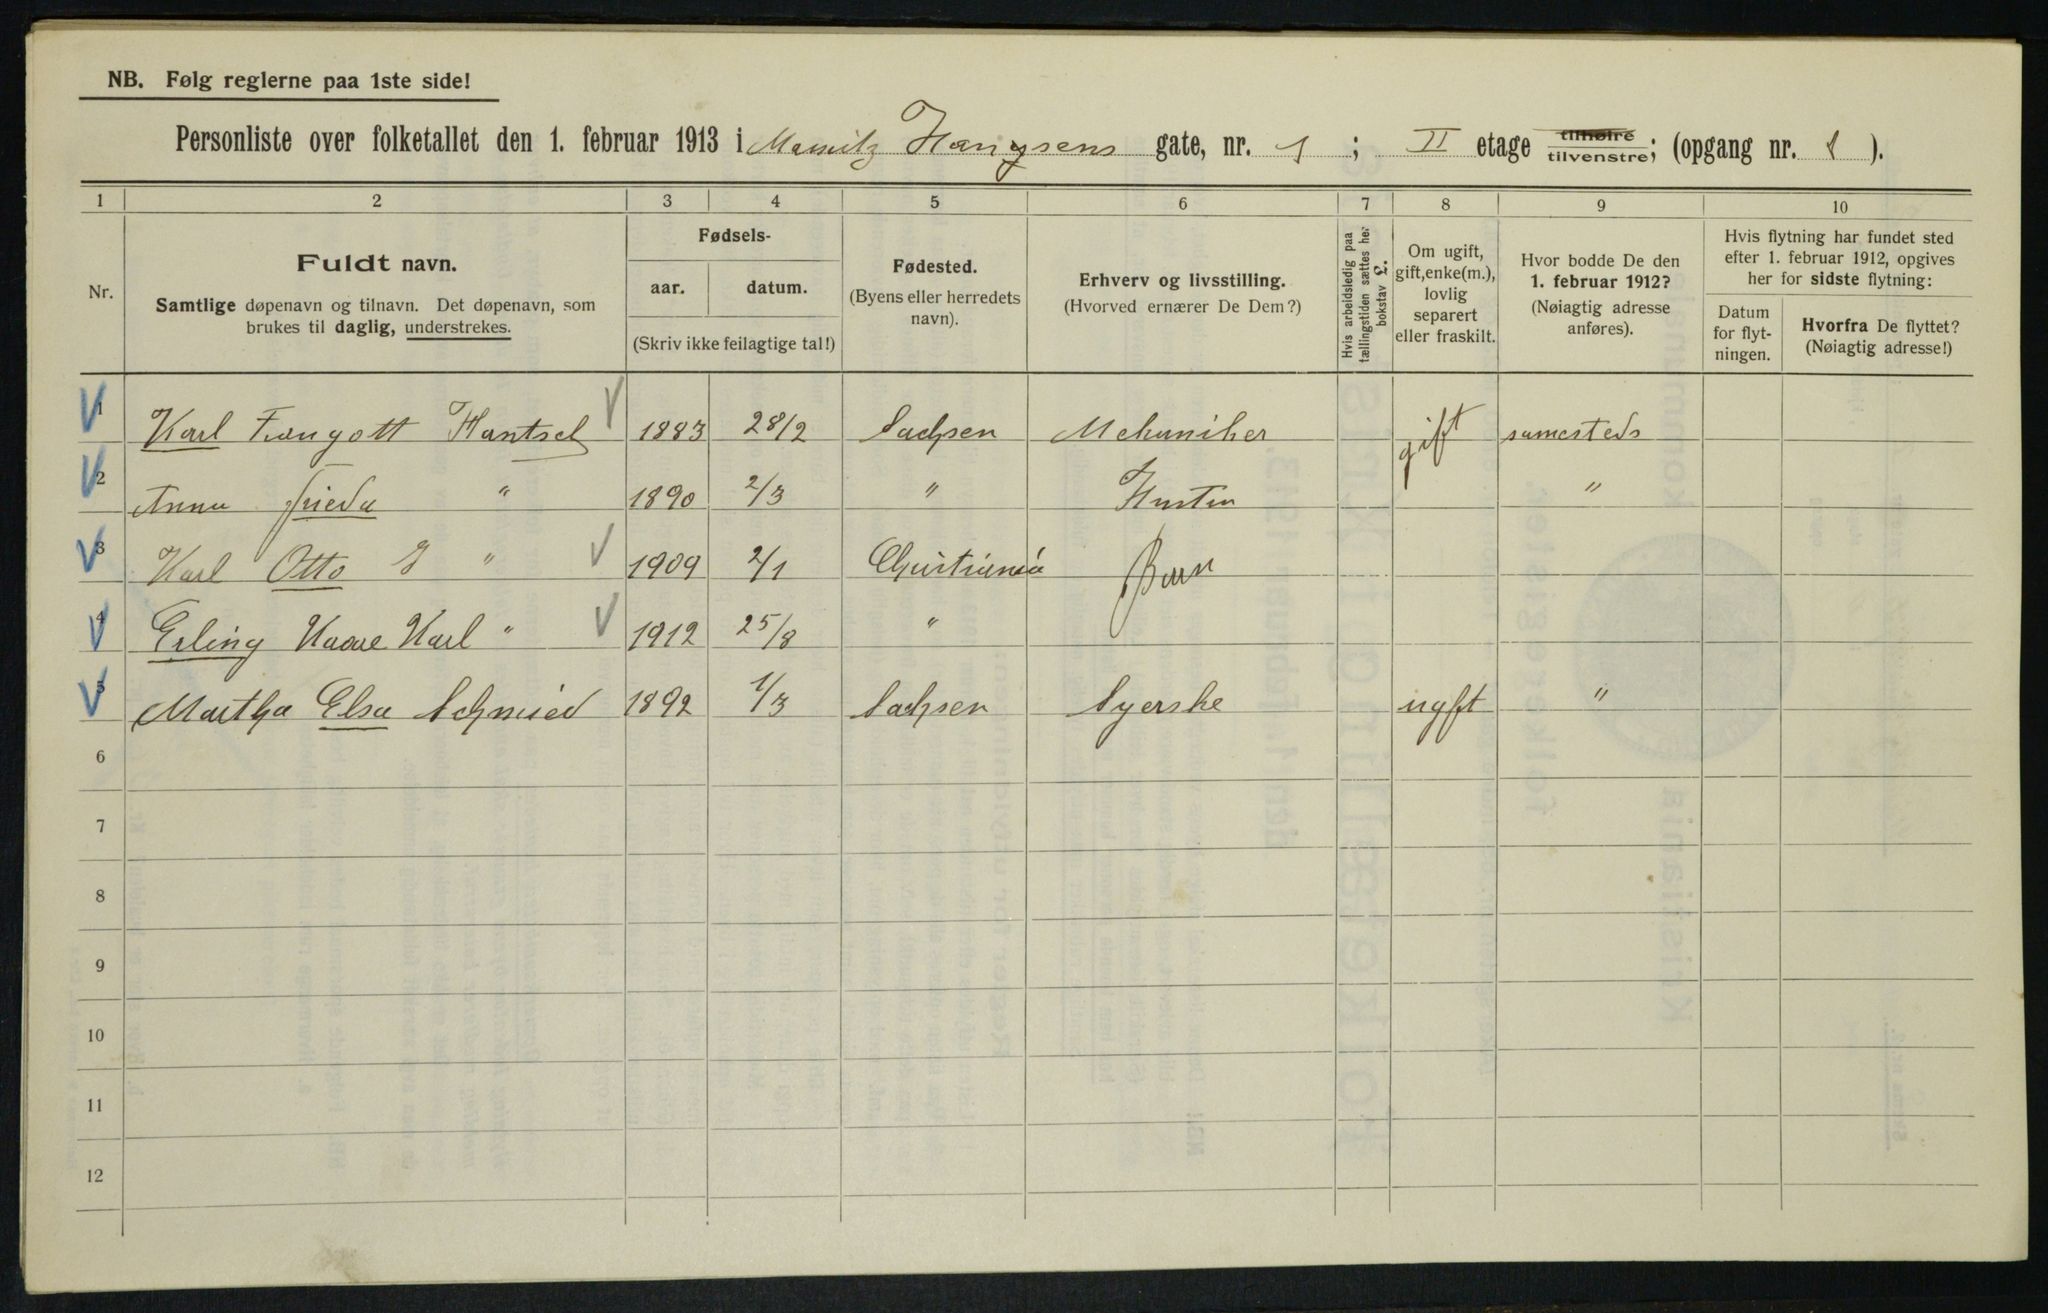 NB. Følg reglerne paa 1ste side!
Personliste over folketallet den 1. februar 1913 i Mauritz Hansens gate, nr. 1 ; II etage tilhøire tilvenstre; (opgang nr. 1 ).
1 2 3 4 5 6 7 8 9 10
Nr.
Fuldt navn.
Samtlige døpenavn og tilnavn. Det døpenavn, som
brukes til daglig, understrekes.
Fødsels-
aar. datum.
(Skriv ikke feilagtige tal!)
Fødested.
(Byens eller herredets
navn).
Erhverv og livsstilling.
(Hvorved ernærer De Dem?)
Hvis arbeidsledig paa
tællingstiden sættes her
bokstav L.
Om ugift,
gift, enke(m.),
lovlig
separert
eller fraskilt.
Hvor bodde De den
1. februar 1912?
(Nøiagtig adresse
anføres).
Hvis flytning har fundet sted
efter 1. februar 1912, opgives
her for sidste flytning:
Datum
for flyt-
ningen.
Hvorfra De flyttet?
(Nøiagtig adresse!)
1 Karl Traugott Hantsch 1883 28/2 Sachsen Mekaniker gift samesteds
2 Anna Frieda " 1890 2/3 " Hustru "
3 Karl Otto " 1909 2/1 Christiania Barn
4 Erling Kaare Karl " 1912 25/8 "
5 Martha Elsa Schmied 1892 1/3 Sachsen Syerske ugift "
6
7
8
9
10
11
12